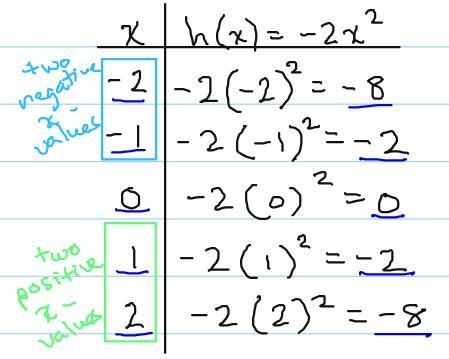 x h(x) = -2x²
two negative x-values
-2 -2(-2)² = -8
-1 -2(-1)² = -2
0 -2(0)² = 0
two positive x-values
1 -2(1)² = -2
2 -2(2)² = -8